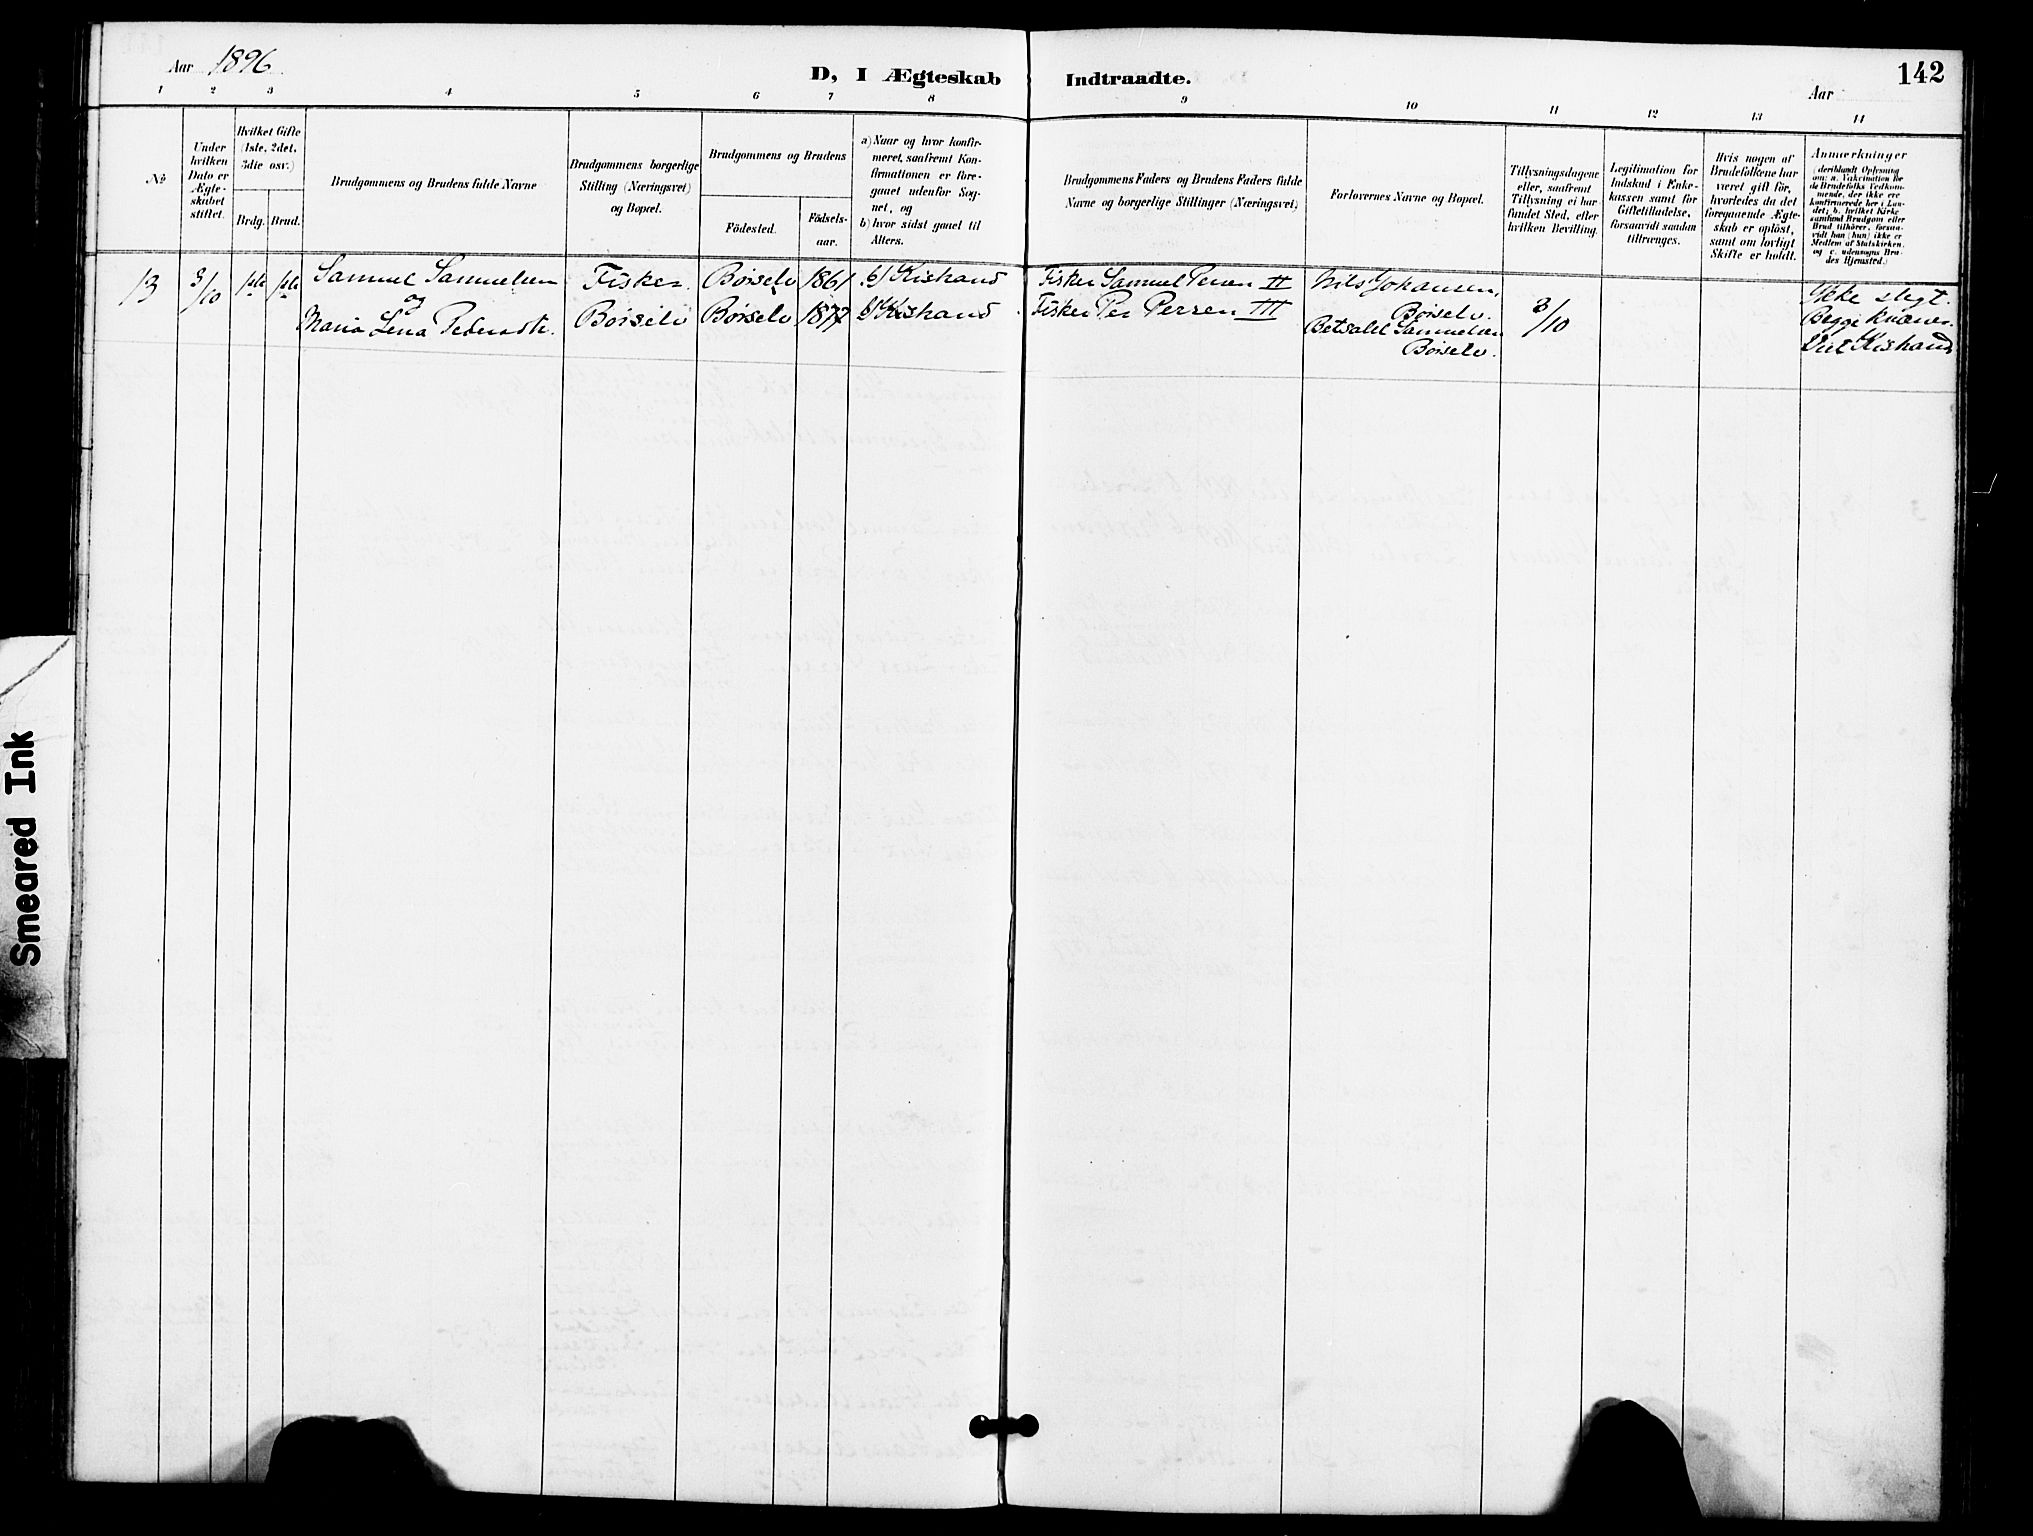 Aar 1896
D, I Ægteskab Indtraadte.
Aar
142
1 2 3 4 5 6 7 8 9 10 11 12 13 14
No
Under hvilken Dato er Ægteskabet stiftet.
Hvilket Gifte (1ste, 2det, 3die osv.)
Brdg. Brud.
Brudgommens og Brudens fulde Navne
Brudgommens borgerlige Stilling (Næringsvei) og Bopæl.
Brudgommens og Brudens
Födested.
Födselsaar.
a) Naar og hvor konfirmeret, saafremt Konfirmationen er foregaaet udenfor Sognet, og
b) hvor sidst gaaet til Alters.
Brudgommens Faders og Brudens Faders fulde Navne og borgerlige Stillinger (Næringsvei)
Forlovernes Navne og Bopæl.
Tillysningsdagene eller, saafremt Tillysning ei har fundet Sted, efter hvilken Bevilling.
Legitimation for Indskud i Enkekassen samt for Giftetilladelse, forsaavidt saadan tiltrænges.
Hvis nogen af Brudefolkene har været gift för, hvorledes da det foregaaende Ægteskab er oplöst, samt om lovligt Skifte er holdt.
Anmærkninger (deriblandt Oplysning om: a. Vakcination for de Brudefolks Vedkommende, der ikke ere konfirmerede her i Landet; b. hvilket Kirkesamfund Brudgom eller Brud tilhörer, forsaavidt han (hun) ikke er Medlem af Statskirken, og c. udensogns Brudes Hjemsted.)
13 3/10 1ste 1ste Samuel Samuelsen Fisker. Börselv 1861 b) Kistrand Fisker Samuel Persen II Nils Johansen, Ikke slegt.
og
Maria Lena Pedersdtr. Börselv Börselv 1877 b) Kistrand. Fisker Per Persen III Börselv. 3/10 Begge kvæner.
Betsalel Samuelsen Viet Kistrand
Börselv.
Smeared Ink